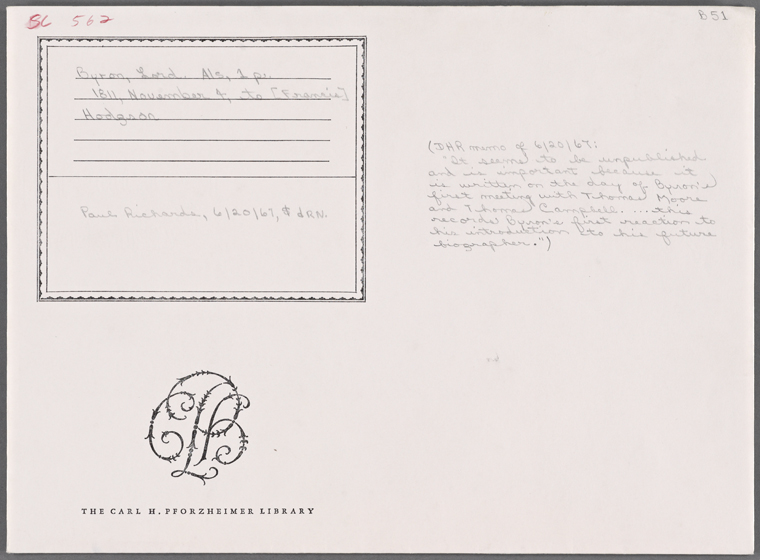 SC 562
B51
Byron, Lord. Als, 1 p.
1811, November 4, to [Francis]
Hodgson
Paul Richards, 6/20/67, $ dRN.
(DHR memo of 6/20/67:
"It seems to be unpublished
and is important because it
is written on the day of Byron's
first meeting with Thomas Moore
and Thomas Campbell. ...this
records Byron's first reaction to
his introduction to his future
biographer.")
THE CARL H. PFORZHEIMER LIBRARY